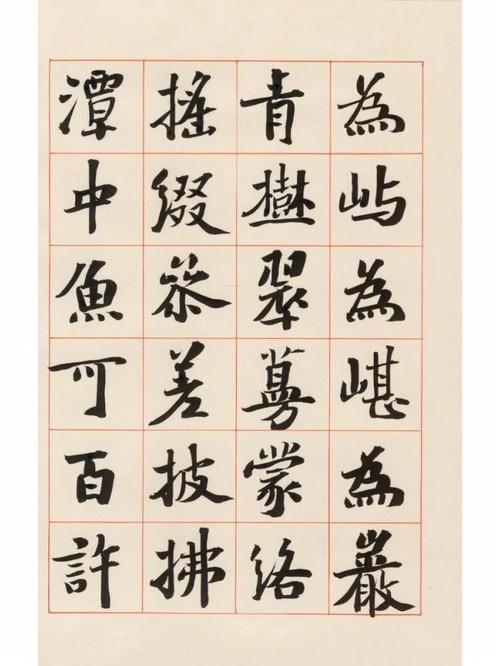 為屿為嵁為巖
青樹翠蔓蒙絡
搖綴參差披拂
潭中魚可百許